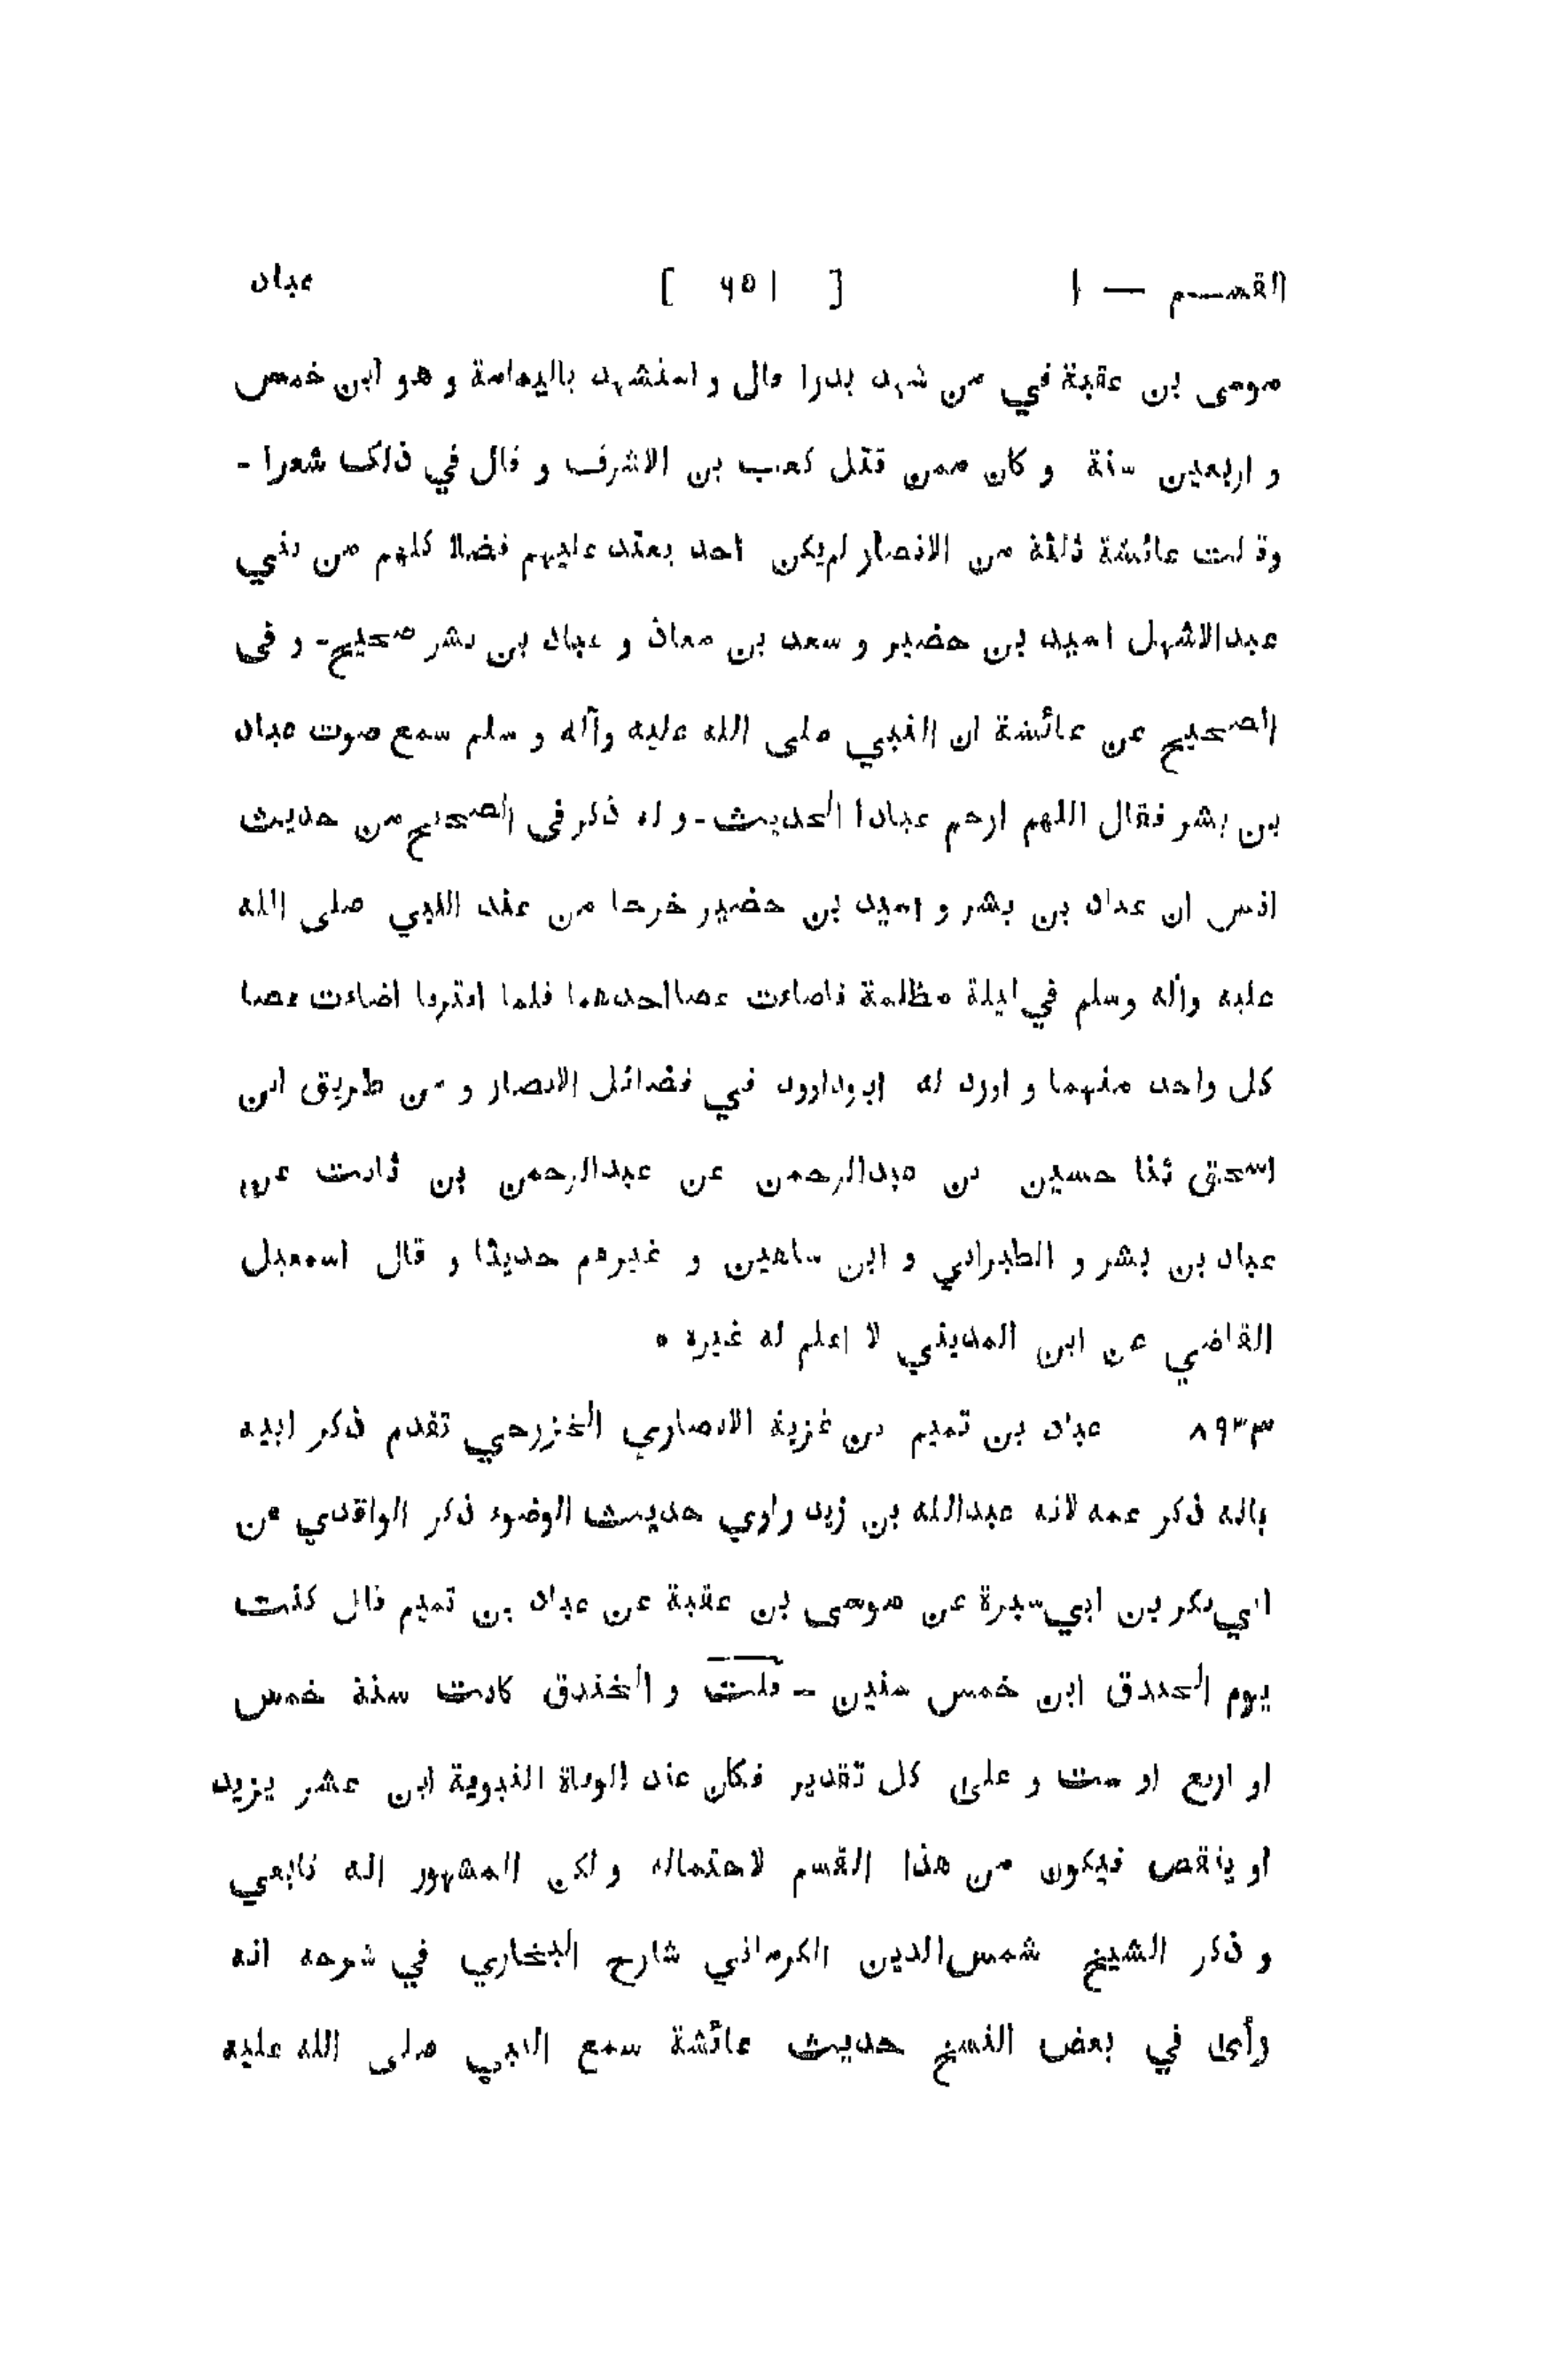 القسم — ١ [ ٦٥١ ] عباد
موسى بن عقبة في من شهد بدرا قال و استشهد باليمامة و هو ابن خمس
و اربعين سنة و كان ممن قتل كعب بن الاشرف و قال في ذلك شعرا -
وقالت عائشة ثلثة من الانصار لم يكن احد يعتد عليهم فضلا كلهم من بني
عبدالاشهل اسيد بن حضير و سعد بن معاذ و عباد بن بشر صحيح - و فى
الصحيح عن عائشة ان النبي صلى الله عليه وآله و سلم سمع صوت عباد
بن بشر فقال اللهم ارحم عبادا الحديث - و له ذكر فى الصحيح من حديث
انس ان عباد بن بشر و اسيد بن حضير خرجا من عند النبي صلى الله
عليه وآله وسلم في ليلة مظلمة فاضاءت عصا احدهما فلما افترقا اضاءت عصا
كل واحد منهما و اورد له ابوداوود في فضائل الانصار و من طريق ابن
اسحق ثنا حسين بن عبدالرحمن عن عبدالرحمن بن ثابت عن
عباد بن بشر و الطبراني و ابن شاهين و غيرهم حديثا و قال اسمعيل
القاضي عن ابن المديني لا اعلم له غيره *
٨٩٣٣ عباد بن تميم بن غزية الانصاري الخزرجي تقدم ذكر ابيه
بانه ذكر عمه لانه عبدالله بن زيد راوي حديث الوضوء ذكر الواقدي عن
ابي بكر بن ابي سبرة عن موسى بن عقبة عن عباد بن تميم قال كنت
يوم الخندق ابن خمس سنين - قلت و الخندق كانت سنة خمس
او اربع او ست و على كل تقدير فكان عند الوفاة النبوية ابن عشر يزيد
او ينقص فيكون من هذا القسم لاحتماله و لكن المشهور انه تابعي
و ذكر الشيخ شمس الدين الكرماني شارح البخاري في شرحه انه
رأى في بعض النسخ حديث عائشة سمع النبي صلى الله عليه